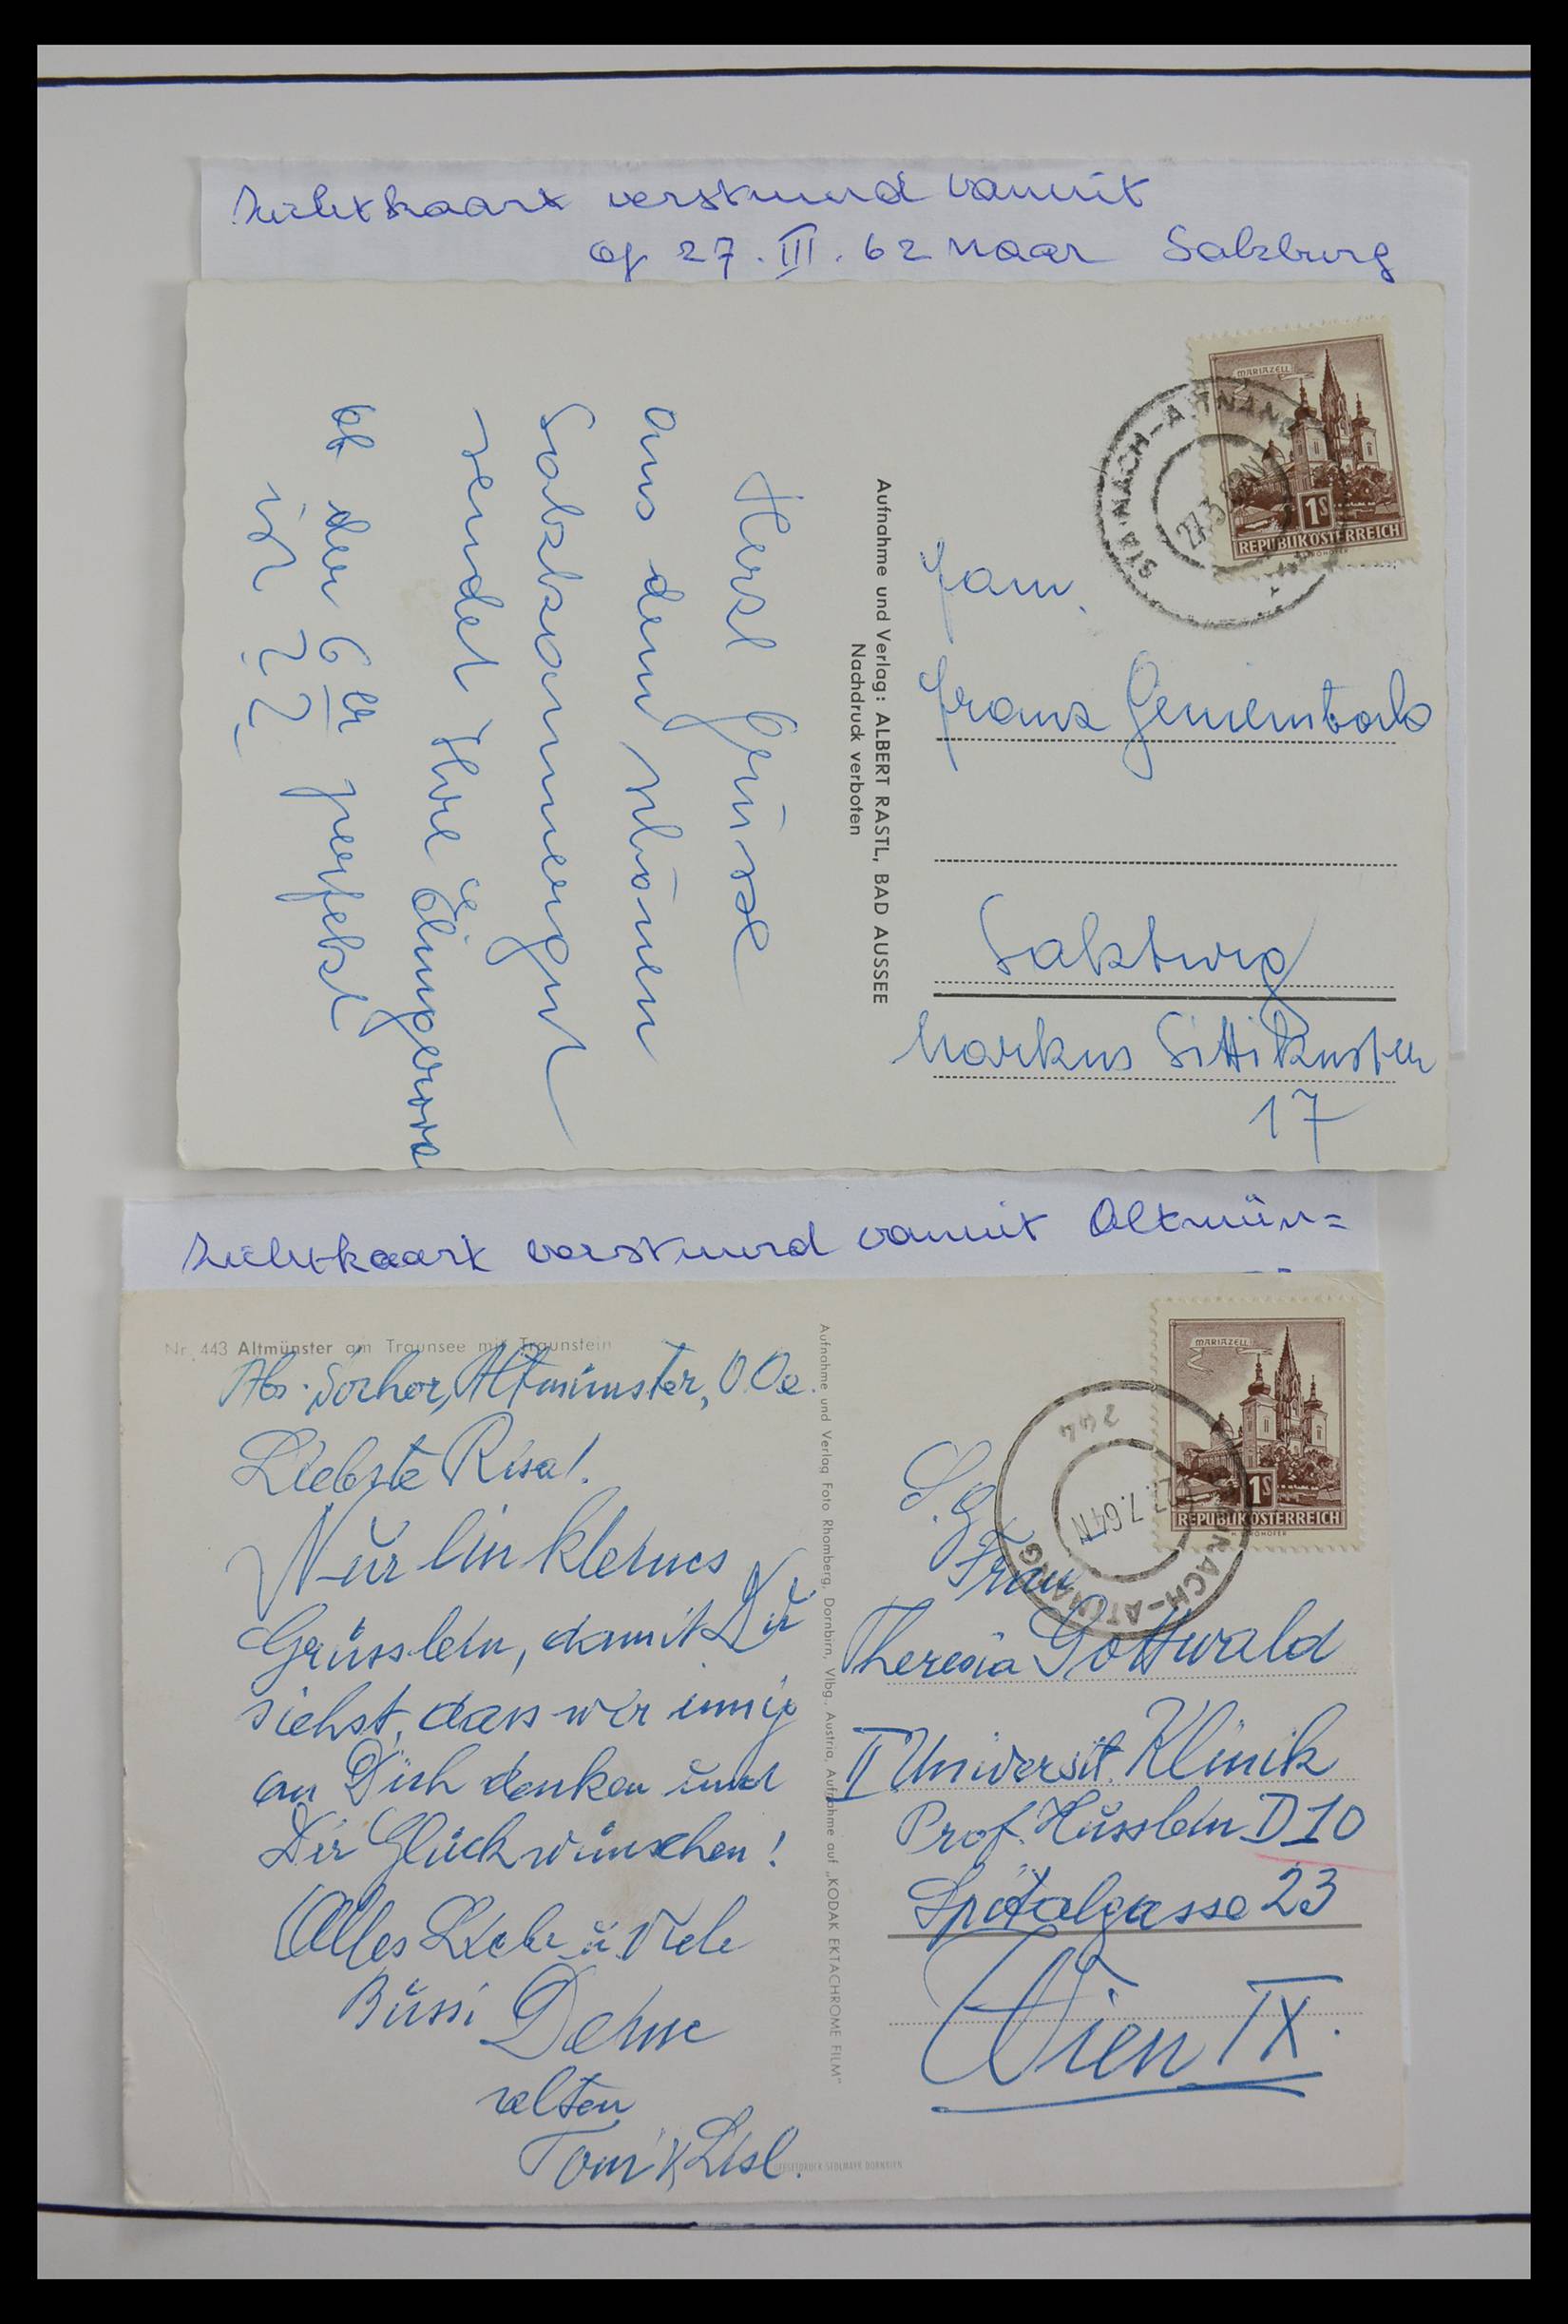 Zichtkaart verstuurd vanuit
op 27.III.62 naar Salzburg
MARIAZELL
1S
REPUBLIK ÖSTERREICH
STAINACH-ATTNANG
27.3
Herzl. Grüsse
aus dem schönen
Salzkammergut
sendet Ihre
ob der 6er perfekt
ist ??
Aufnahme und Verlag: ALBERT RASTL, BAD AUSSEE
Nachdruck verboten
Fam.
Franz
Salzburg
Markus Sittikusstr
17
Zichtkaart verstuurd vanuit Altmün=
Nr. 443 Altmünster am Traunsee mit Traunstein
Abs. Altmünster, O.Oe.
Liebste Risa!
Nur ein kleines
Grüsslein, damit Du
siehst, dass wir innig
an Dich denken und
Dir Glück wünschen!
Alles Liebe u. Viele
Bussi Deine
alten
Toni & Liesl.
Aufnahme und Verlag Foto Rhomberg, Dornbirn, Vlbg., Austria, Aufnahme auf „KODAK EKTACHROME FILM"
MARIAZELL
1S
REPUBLIK ÖSTERREICH
STAINACH-ATTNANG
244
7.64
S.g.
Frau
Theresia Gottwald
II Universit. Klinik
Prof. Husslein D10
Spitalgasse 23
Wien IX.